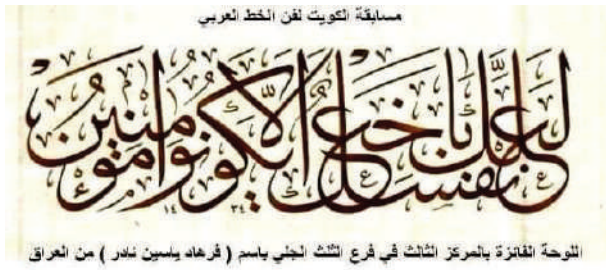 مسابقة الكويت لفن الخط العربي
لعلك باخع نفسك ألا يكونوا مؤمنين
١٤ ٣٤
اللوحة الفائزة بالمركز الثالث في فرع الثلث الجلي باسم ( فرهاد ياسين نادر ) من العراق